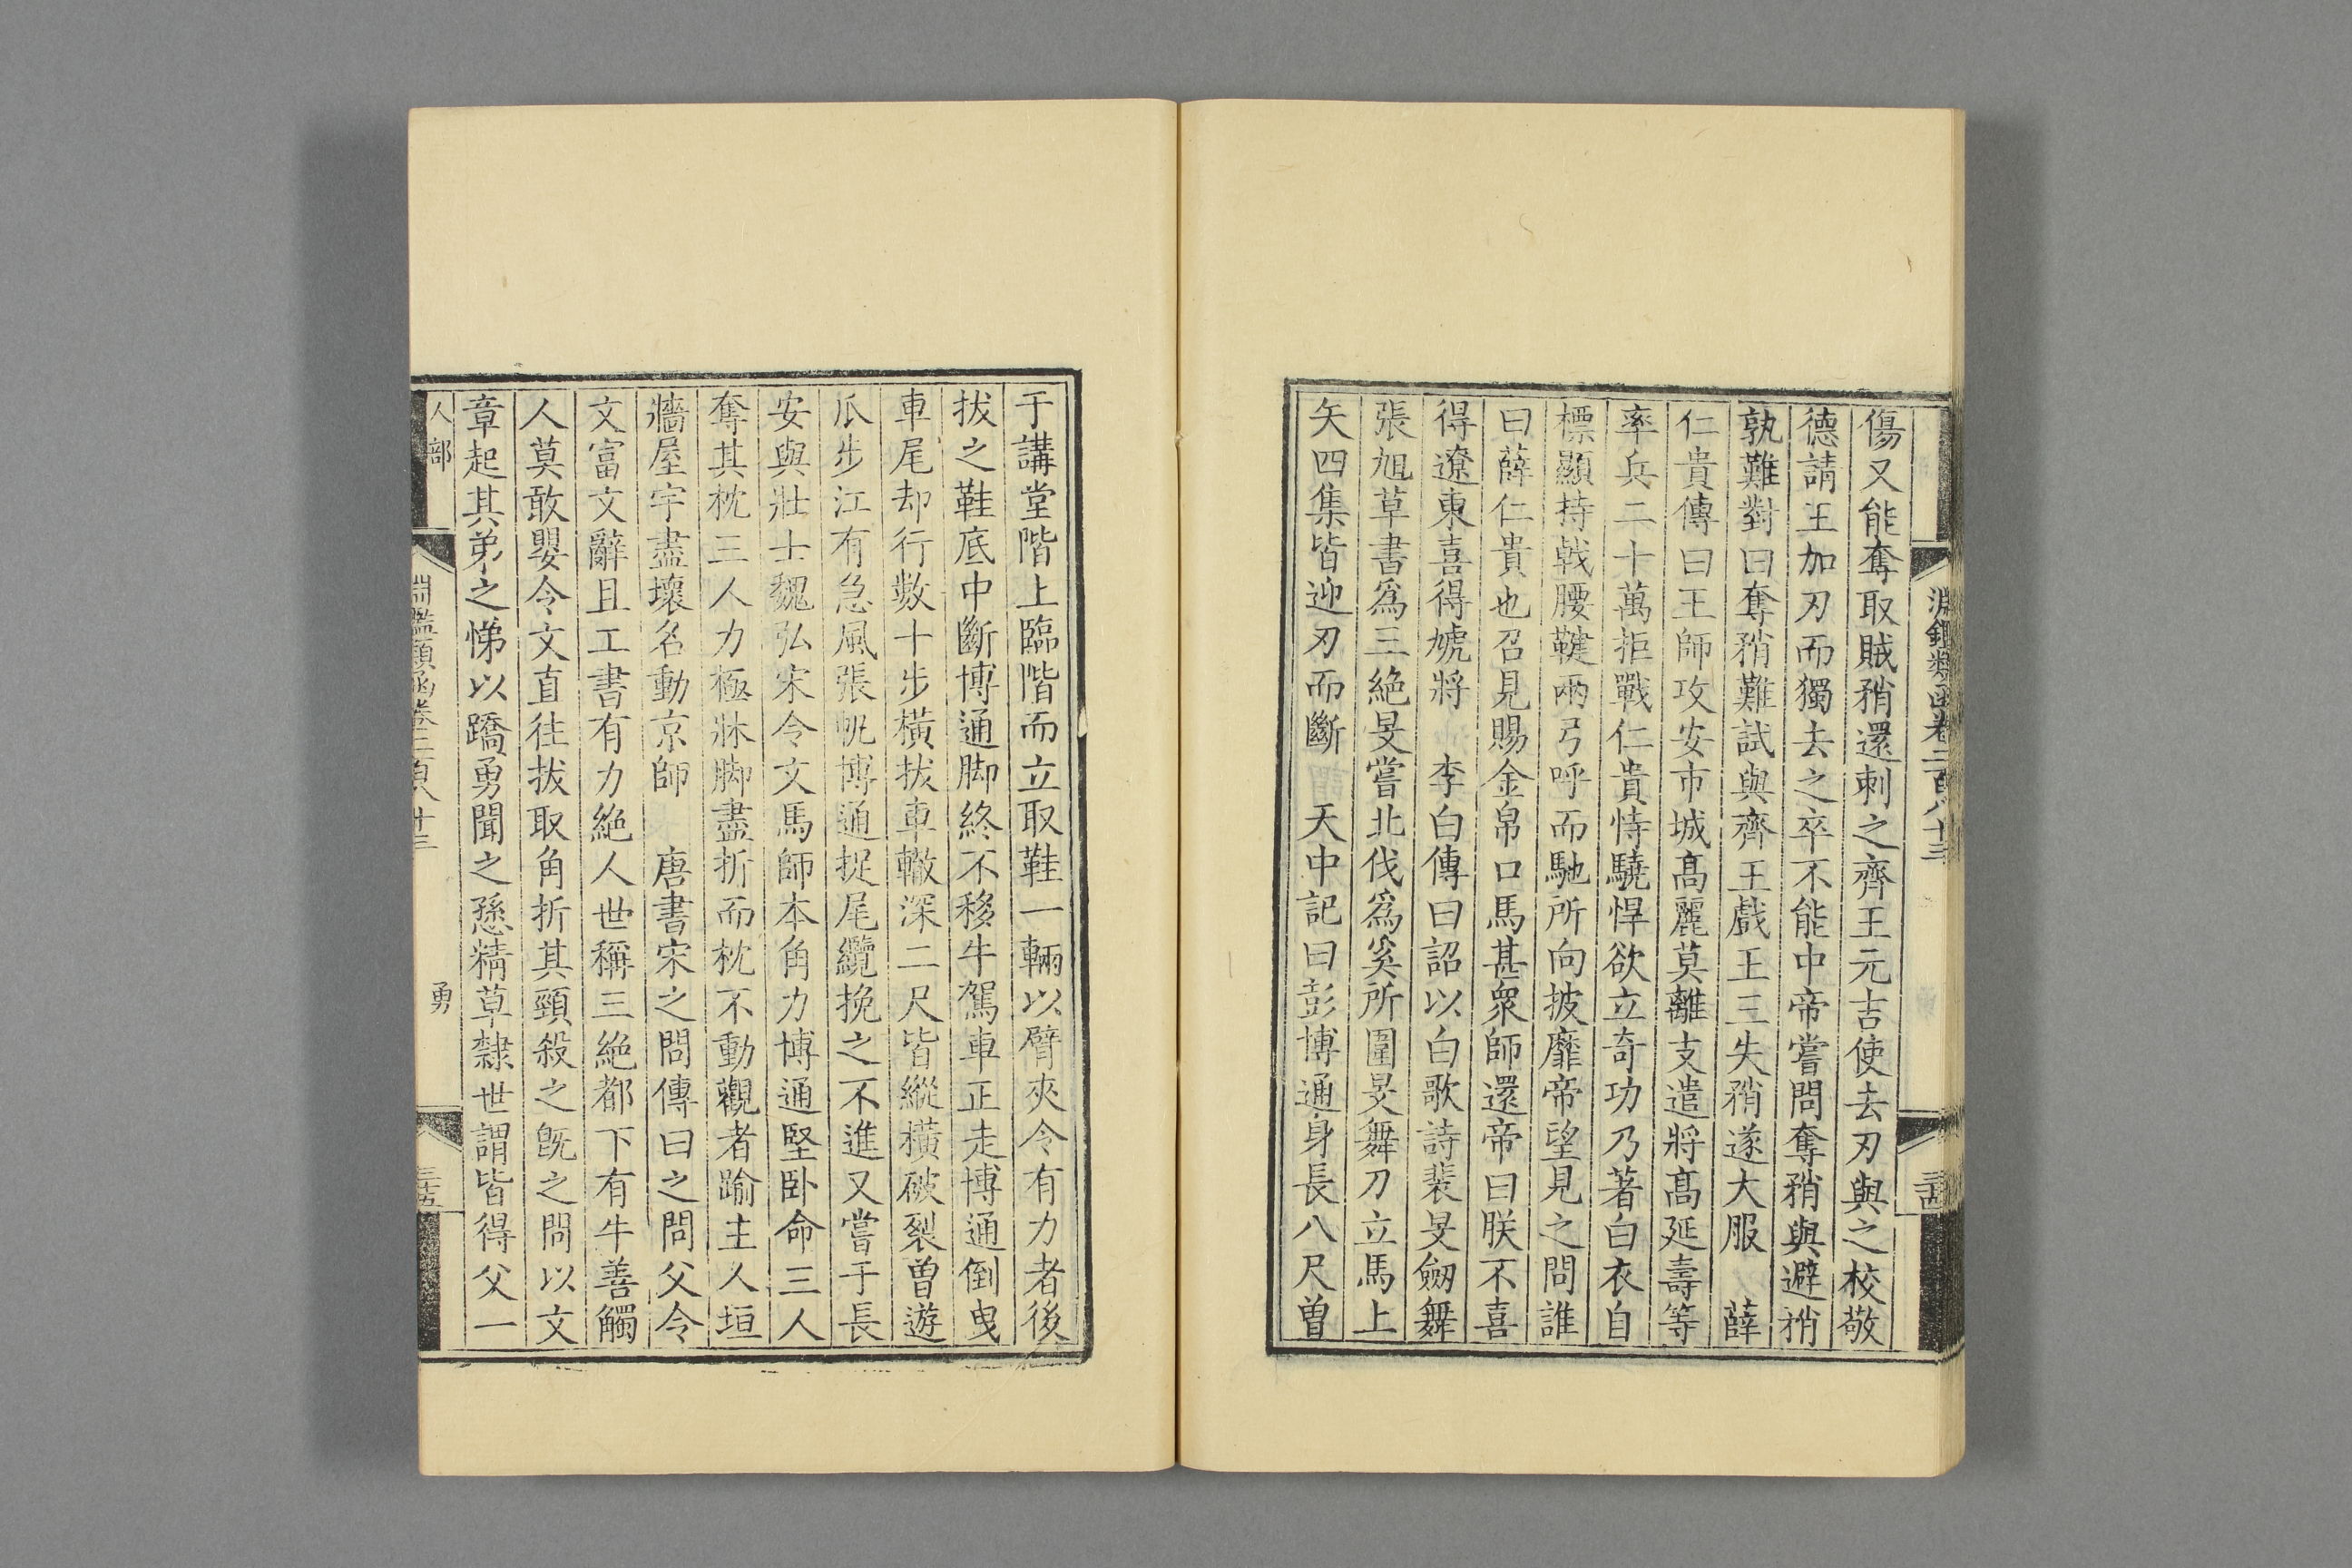 淵鑑類函卷二百八十三
三十四
傷又能奪取賊矟還刺之齊王元吉使去刃與之校敬
德請王加刃而獨去之卒不能中帝嘗問奪矟與避矟
孰難對曰奪矟難試與齊王戲王三失矟遂大服　薛
仁貴傳曰王師攻安市城高麗莫離支遣將高延壽等
率兵二十萬拒戰仁貴恃驍悍欲立奇功乃著白衣自
標顯持戟腰鞬兩弓呼而馳所向披靡帝望見之問誰
曰薛仁貴也召見賜金帛口馬甚衆師還帝曰朕不喜
得遼東喜得虓將　李白傳曰詔以白歌詩裴旻劒舞
張旭草書爲三絶旻嘗北伐爲奚所圍旻舞刀立馬上
矢四集皆迎刃而斷　天中記曰彭博通身長八尺曽
于講堂階上臨階而立取鞋一輛以臂夾令有力者後
拔之鞋底中斷博通脚終不移牛駕車正走博通倒曳
車尾却行數十步橫拔車轍深二尺皆縱橫破裂曽遊
瓜步江有急風張帆博通捉尾纜挽之不進又嘗于長
安與壯士魏弘宋令文馬師本角力博通堅卧命三人
奪其枕三人力極牀脚盡折而枕不動觀者踰主人垣
牆屋宇盡壞名動京師　唐書宋之問傳曰之問父令
文富文辭且工書有力絶人世稱三絶都下有牛善觸
人莫敢嬰令文直往拔取角折其頸殺之旣之問以文
章起其弟之悌以蹻勇聞之愻精草隸世謂皆得父一
人部
淵鑑類函卷二百八十三
勇
三十五